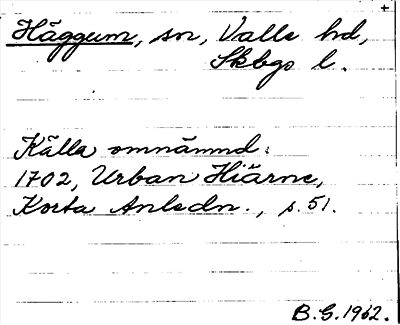 Häggum, sn, Valle hd,
Skbgs l.
Källa omnämnd:
1702, Urban Hiärne,
Korta Anledn., s. 51.
B.G. 1962.